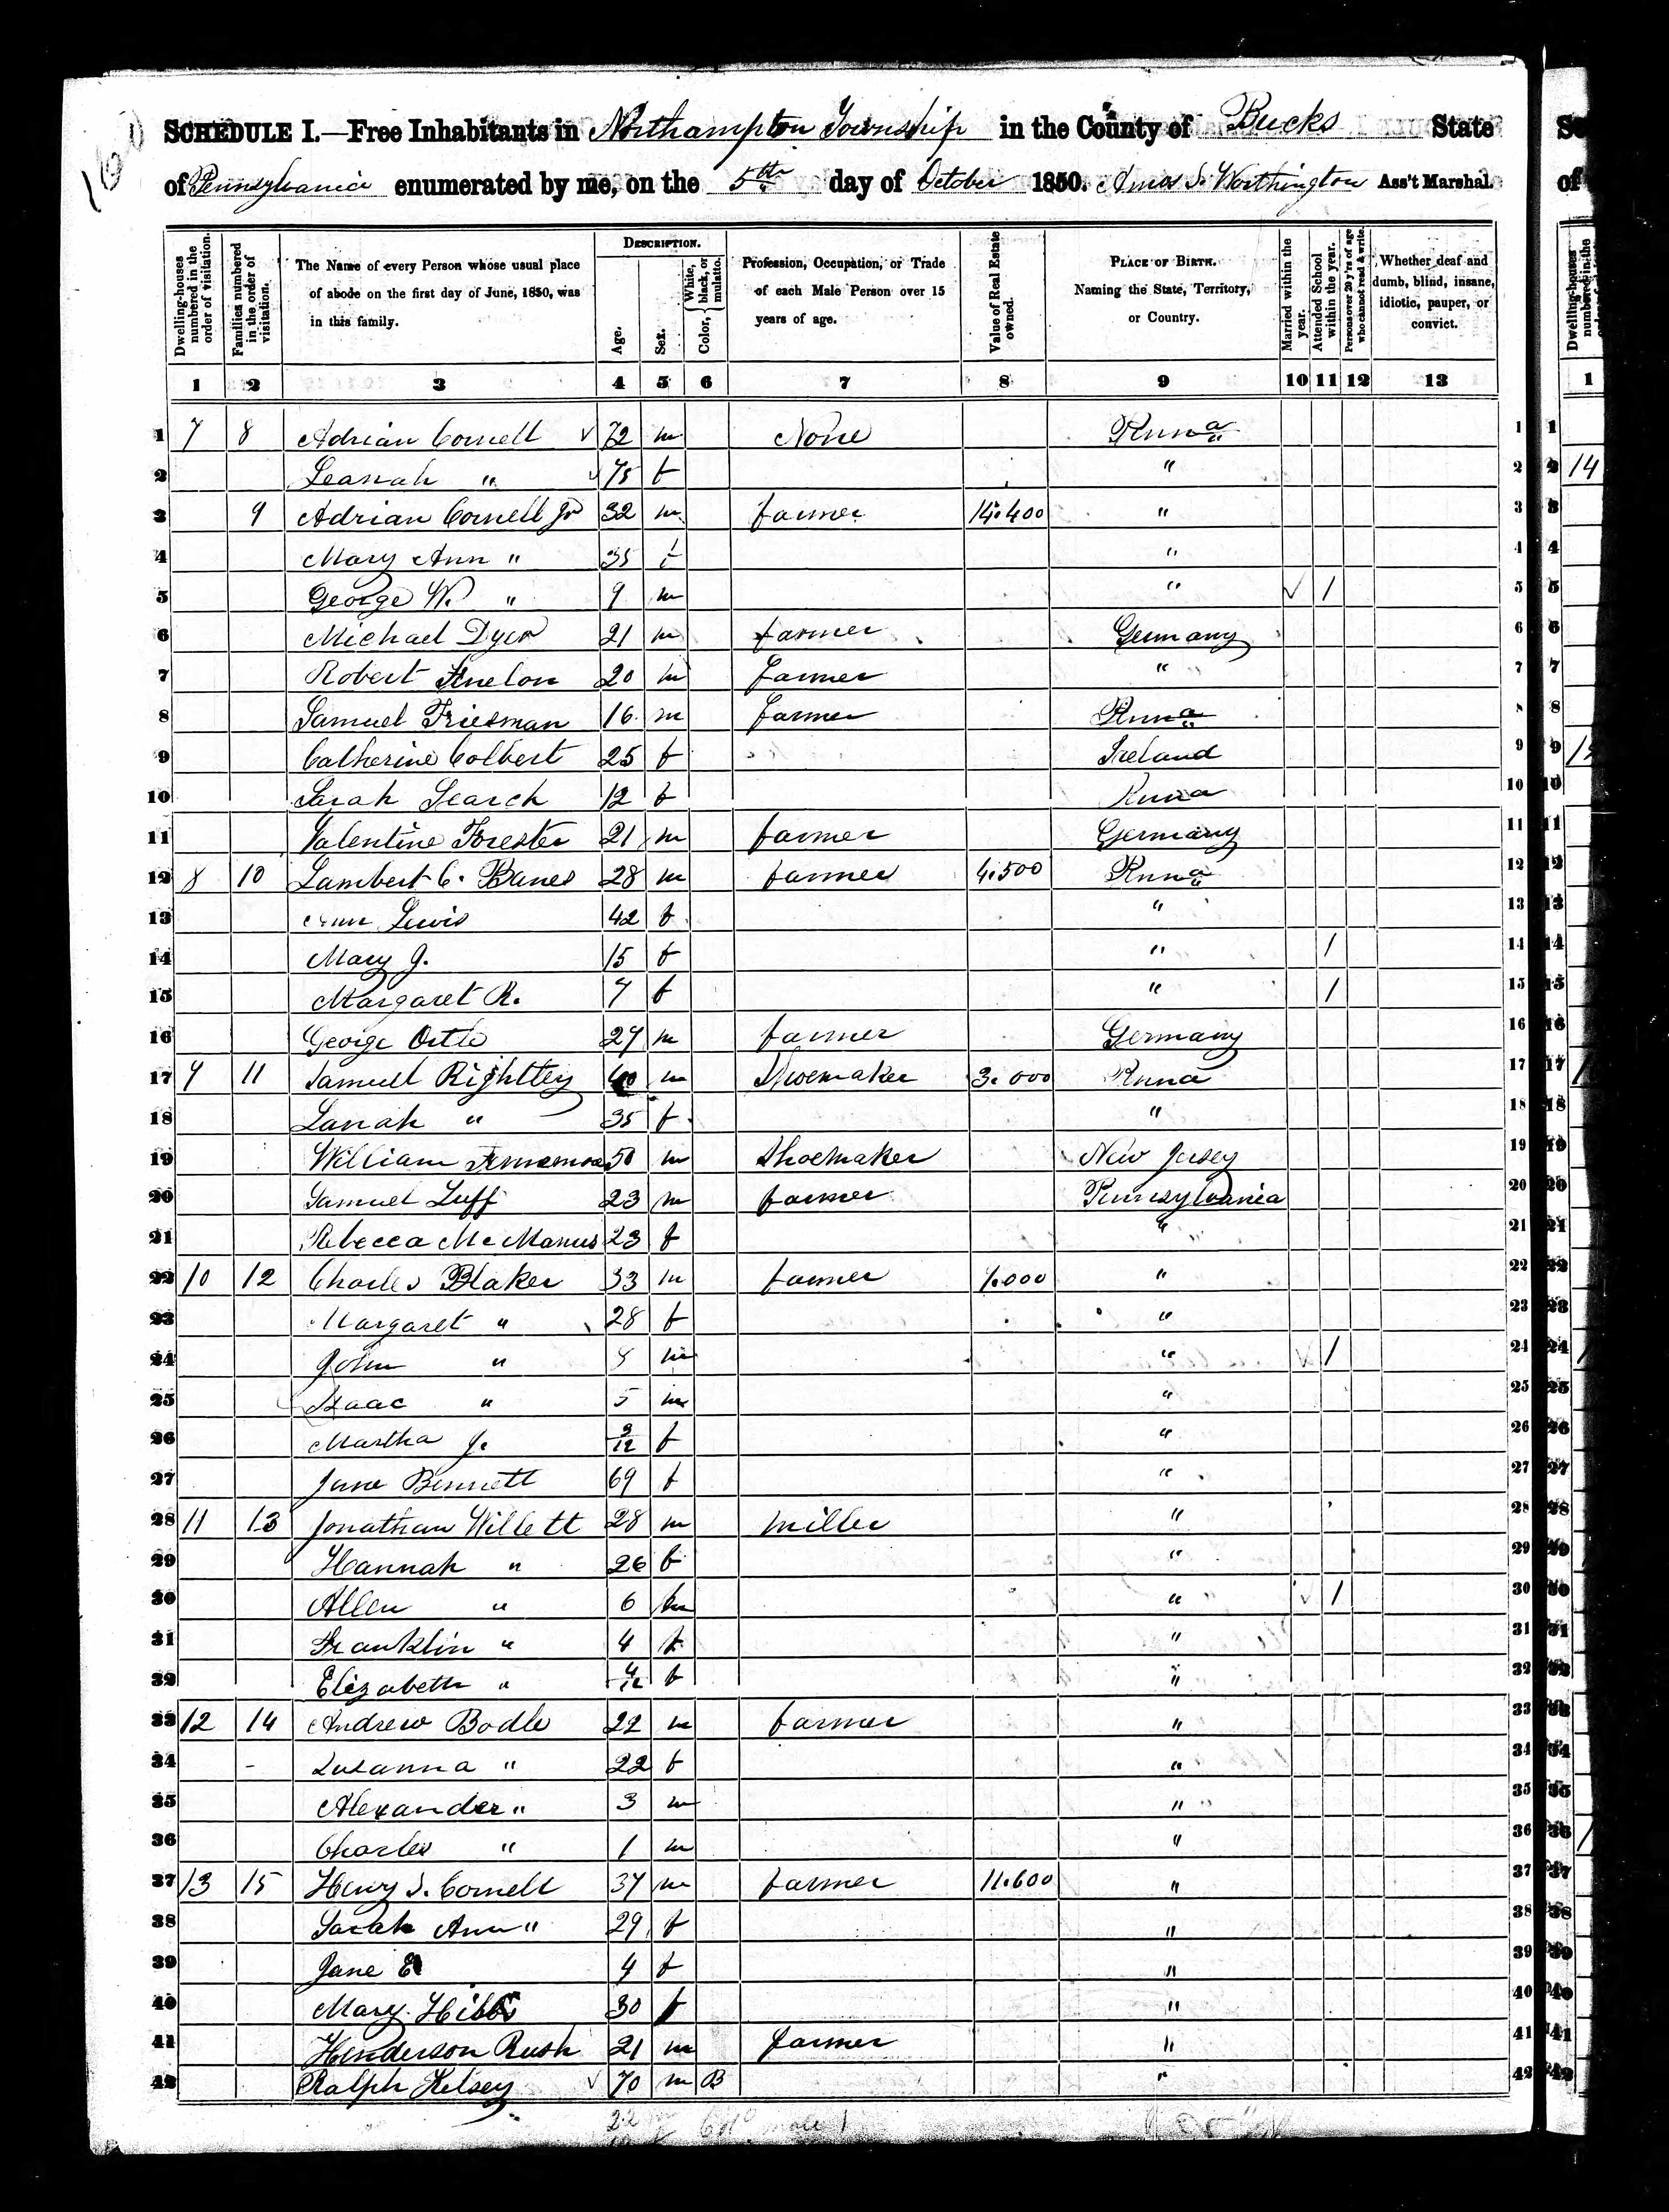 160
SCHEDULE I.—Free Inhabitants in Northampton Township in the County of Bucks State
of Pennsylvania enumerated by me, on the 5th day of October 1850. Amos S. Worthington Ass't Marshal.
Dwelling-houses numbered in the order of visitation. Families numbered in the order of visitation. The Name of every Person whose usual place of abode on the first day of June, 1850, was in this family. DESCRIPTION. Age. Sex. Color, White, black, or mulatto. Profession, Occupation, or Trade of each Male Person over 15 years of age. Value of Real Estate owned. PLACE OF BIRTH. Naming the State, Territory, or Country. Married within the year. Attended School within the year. Persons over 20 y'rs of age who cannot read & write. Whether deaf and dumb, blind, insane, idiotic, pauper, or convict.
1 2 3 4 5 6 7 8 9 10 11 12 13
1 7 8 Adrian Cornell √ 72 m None Penna 1
2 Leanah " √ 75 f " 2
3 9 Adrian Cornell Jr 32 m farmer 14.400 " 3
4 Mary Ann " 35 f " 4
5 George W. " 9 m " √ 1 5
6 Michael Dyer 21 m farmer Germany 6
7 Robert 20 m farmer " 7
8 Samuel Friesman 16 m farmer Penna 8
9 Catherine Colbert 25 f Ireland 9
10 Sarah Search 12 f Penna 10
11 Valentine Forester 21 m farmer Germany 11
12 8 10 Lambert C. Banes 28 m farmer 4.500 Penna 12
13 Ann Lewis 42 f " 13
14 Mary J. 15 f " 1 14
15 Margaret R. 7 f " 1 15
16 George 27 m farmer Germany 16
17 9 11 Samuel Rightley 40 m Shoemaker 3.000 Penna 17
18 Lanah " 35 f " 18
19 William 50 m Shoemaker New Jersey 19
20 Samuel Luff 23 m farmer Pennsylvania 20
21 Rebecca McManus 23 f " 21
22 10 12 Charles Blaker 33 m farmer 1.000 " 22
23 Margaret " 28 f " 23
24 John " m " √ 1 24
25 Isaac " 5 m " 25
26 Martha J. 9/12 f " 26
27 Jane Bennett 69 f " 27
28 11 13 Jonathan Willett 28 m miller " 28
29 Hannah " 26 f " 29
30 Allen " 6 m " √ 1 30
31 Franklin " 4 " 31
32 Elizabeth " 4/12 f " 32
33 12 14 Andrew Bodle 22 m farmer " 33
34 Susanna " 22 f " 34
35 Alexander " 3 m " 35
36 Charles " 1 m " 36
37 13 15 Henry S. Cornell 37 m farmer 11.600 " 37
38 Sarah Ann " 29 f " 38
39 Jane E 4 f " 39
40 Mary Hibbs 30 f " 40
41 Henderson Rush 21 m farmer " 41
42 Ralph Kelsey √ 70 m B " 42